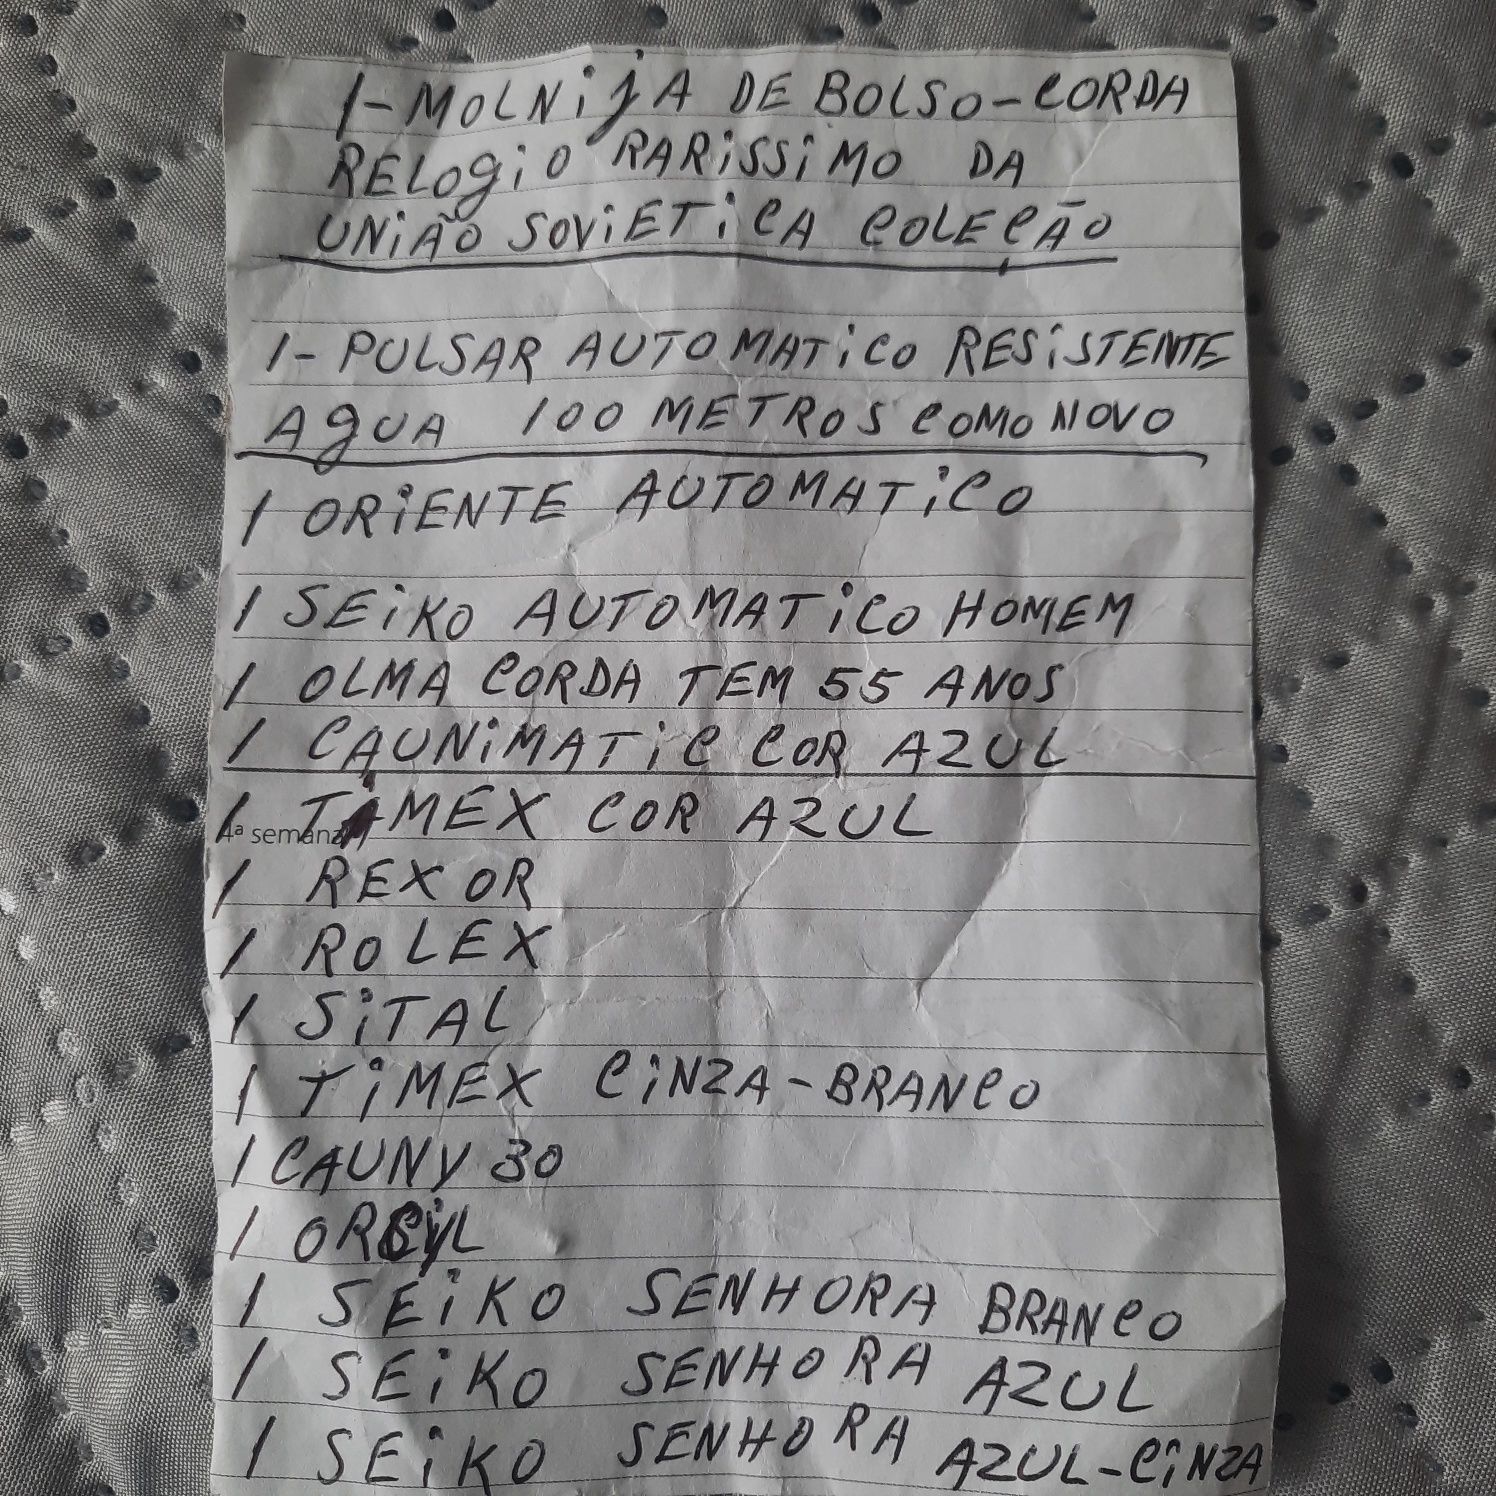 1-MOLNijA DE BOLSO-CORDA
RELOgiO RARiSSiMO DA
UNiÃO SOViETiCA COLEÇÃO
1- PULSAR AUTOMATiCO RESiSTENTE
AgUA 100 METROS COMO NOVO
1 ORiENTE AUTOMATiCO
1 SEiKO AUTOMATiCO HOMEM
1 OLMA CORDA TEM 55 ANOS
1 CAUNiMATiC COR AZUL
1 TAMEX COR AZUL
4ª semana
1 REXOR
1 ROLEX
1 SiTAL
1 TiMEX CiNZA-BRANCO
1 CAUNY 30
1
1 SEiKO SENHORA BRANCO
1 SEiKO SENHORA AZUL
1 SEiKO SENHORA AZUL-CiNZA